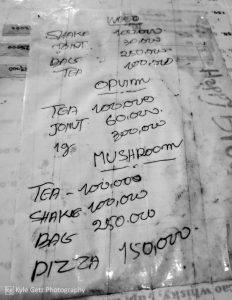 WEED
SHAKE 100,000
JOINT 30,000
BAG 250,000
TEA 100,000
OPIUM
TEA 100,000
JOINT 60,000
1g 300,000
MUSHROOM
TEA - 100,000
SHAKE 100,000
BAG 250.000
PIZZA 150,000.
Kyle Getz Photography